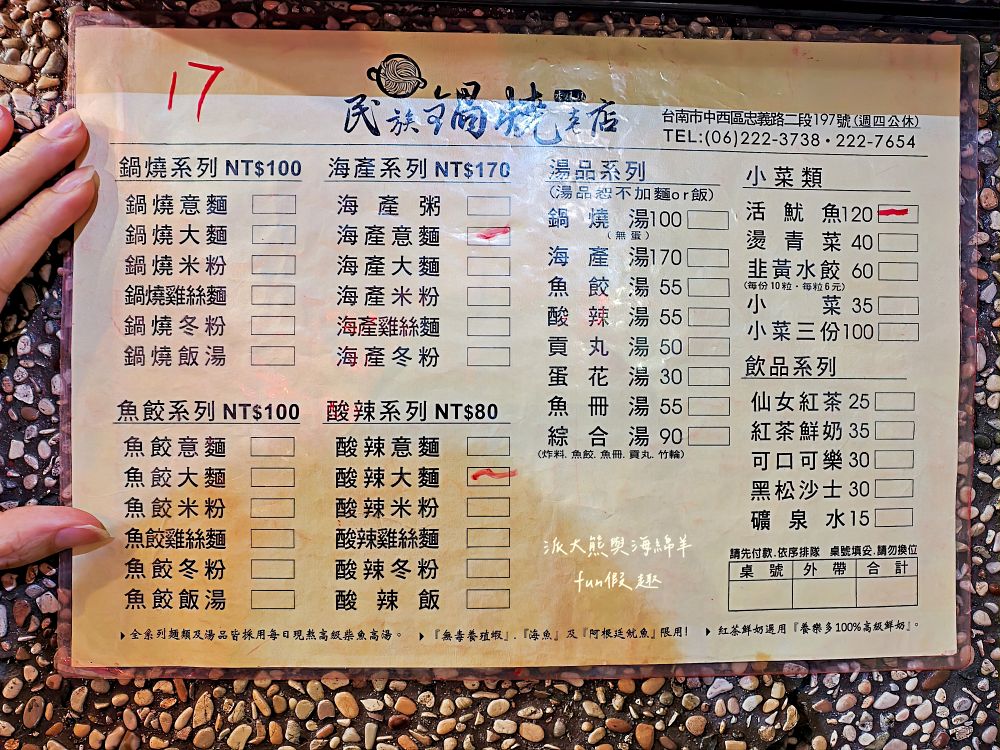 17
民族鍋燒老店
台南市中西區忠義路二段197號(週四公休)
TEL:(06)222-3738・222-7654
鍋燒系列 NT$100
鍋燒意麵
鍋燒大麵
鍋燒米粉
鍋燒雞絲麵
鍋燒冬粉
鍋燒飯湯
海產系列 NT$170
海產粥
海產意麵
海產大麵
海產米粉
海產雞絲麵
海產冬粉
魚餃系列 NT$100
魚餃意麵
魚餃大麵
魚餃米粉
魚餃雞絲麵
魚餃冬粉
魚餃飯湯
酸辣系列 NT$80
酸辣意麵
酸辣大麵
酸辣米粉
酸辣雞絲麵
酸辣冬粉
酸辣飯
湯品系列
(湯品恕不加麵or飯)
鍋燒湯100
(無蛋)
海產湯170
魚餃湯55
酸辣湯55
貢丸湯50
蛋花湯30
魚冊湯55
綜合湯90
(炸料.魚餃.魚冊.貢丸.竹輪)
小菜類
活魷魚120
燙青菜40
韭黃水餃60
(每份10粒・每粒6元)
小菜35
小菜三份100
飲品系列
仙女紅茶25
紅茶鮮奶35
可口可樂30
黑松沙士30
礦泉水15
請先付款.依序排隊 桌號填妥.請勿換位
桌號 外帶 合計
派大熊與海綿羊
fun假趣
全系列麵類及湯品皆採用每日現熬高級柴魚高湯。
『無毒養殖蝦』.『海魚』及『阿根廷魷魚』限用!
紅茶鮮奶選用『養樂多100%高級鮮奶』。